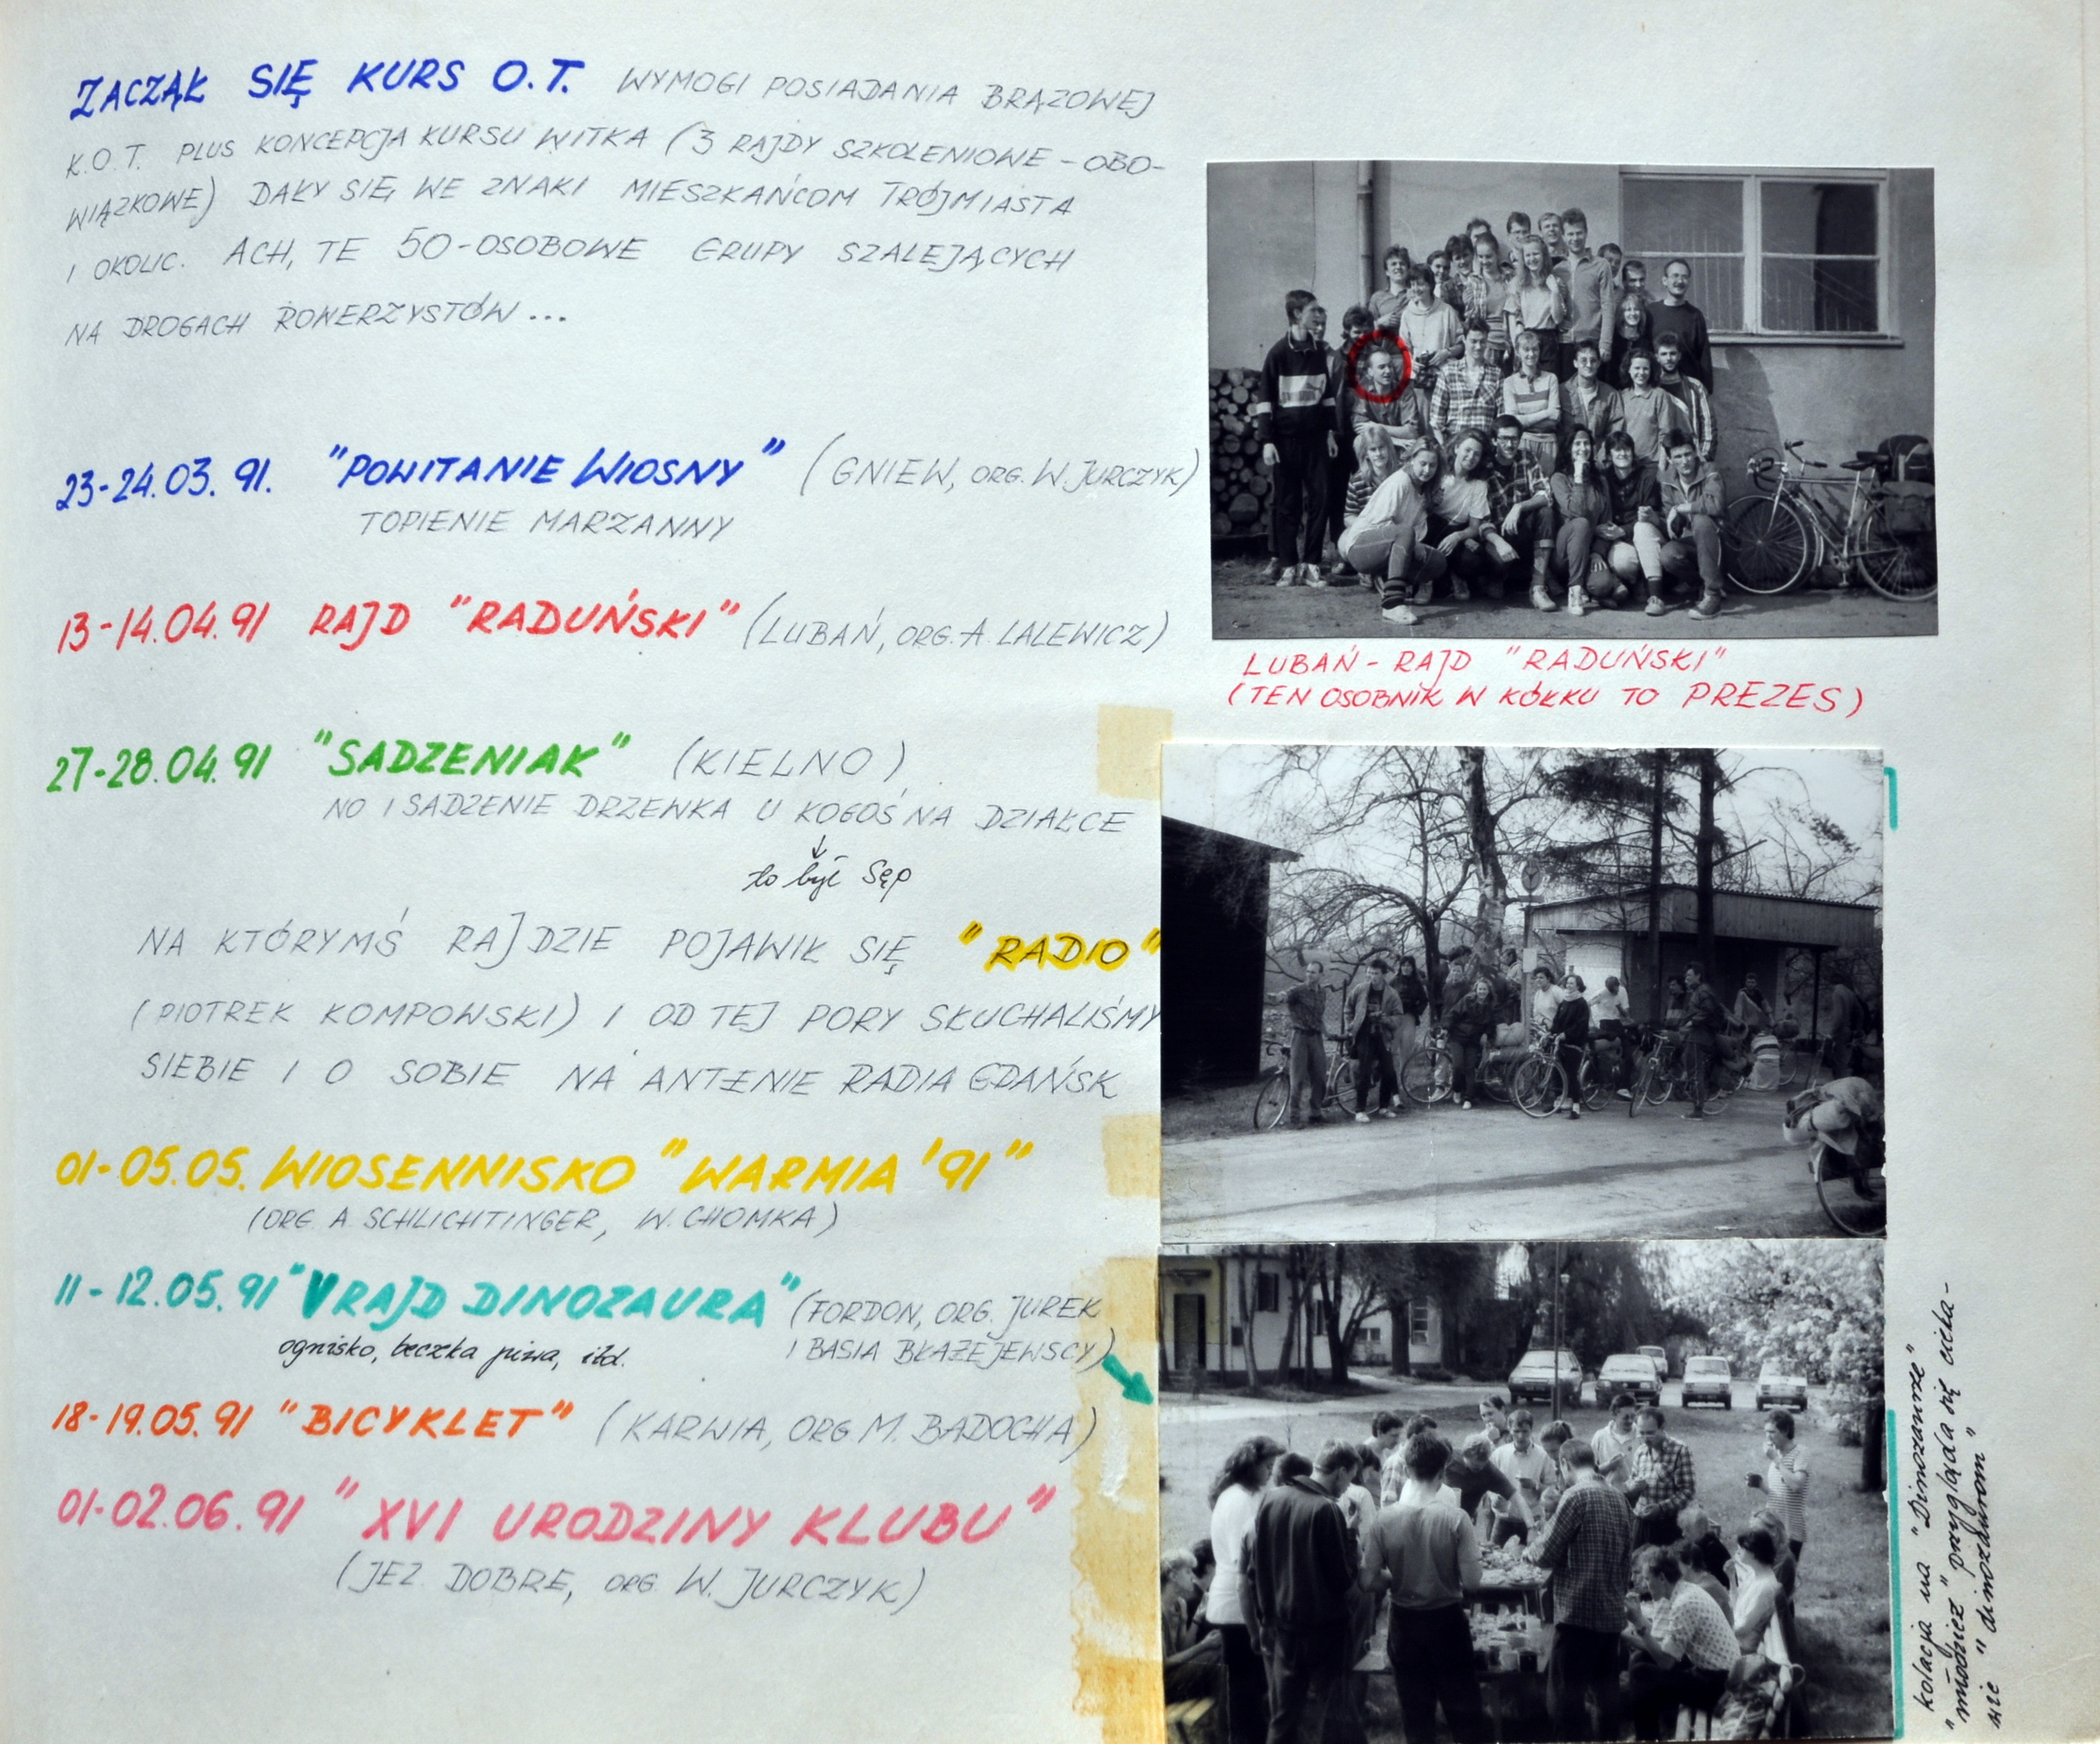 ZACZĄŁ SIĘ KURS O.T. WYMOGI POSIADANIA BRĄZOWEJ
K.O.T. PLUS KONCEPCJA KURSU WITKA (3 RAJDY SZKOLENIOWE - OBO-
WIĄZKOWE) DAŁY SIĘ WE ZNAKI MIESZKAŃCOM TRÓJMIASTA
I OKOLIC. ACH, TE 50-OSOBOWE GRUPY SZALEJĄCYCH
NA DROGACH ROWERZYSTÓW...
23-24.03.91. "POWITANIE WIOSNY" (GNIEW, ORG. W. JURCZYK)
TOPIENIE MARZANNY
13-14.04.91 RAJD "RADUŃSKI" (LUBAŃ, ORG. A. LALEWICZ)
27-28.04.91 "SADZENIAK" (KIELNO)
NO I SADZENIE DRZEWKA U KOGOŚ NA DZIAŁCE
to był Sęp
NA KTÓRYMŚ RAJDZIE POJAWIŁ SIĘ "RADIO"
(PIOTREK KOMPOWSKI) I OD TEJ PORY SŁUCHALIŚMY
SIEBIE I O SOBIE NA ANTENIE RADIA GDAŃSK
01-05.05. WIOSENNISKO "WARMIA '91"
(ORG. A. SCHLICHTINGER, W. CHOMKA)
11-12.05.91 "V RAJD DINOZAURA" (FORDON, ORG. JUREK
I BASIA BŁAŻEJEWSCY)
ognisko, beczka piwa, itd.
18-19.05.91 "BICYKLET" (KARWIA, ORG M. BADOCHA)
01-02.06.91 "XVI URODZINY KLUBU"
(JEZ. DOBRE, ORG. W. JURCZYK)
LUBAŃ - RAJD "RADUŃSKI"
(TEN OSOBNIK W KÓŁKU TO PREZES)
kolacja na "Dinozaurze"
"młodzież" przygląda się cieka-
wie "dinozaurom"